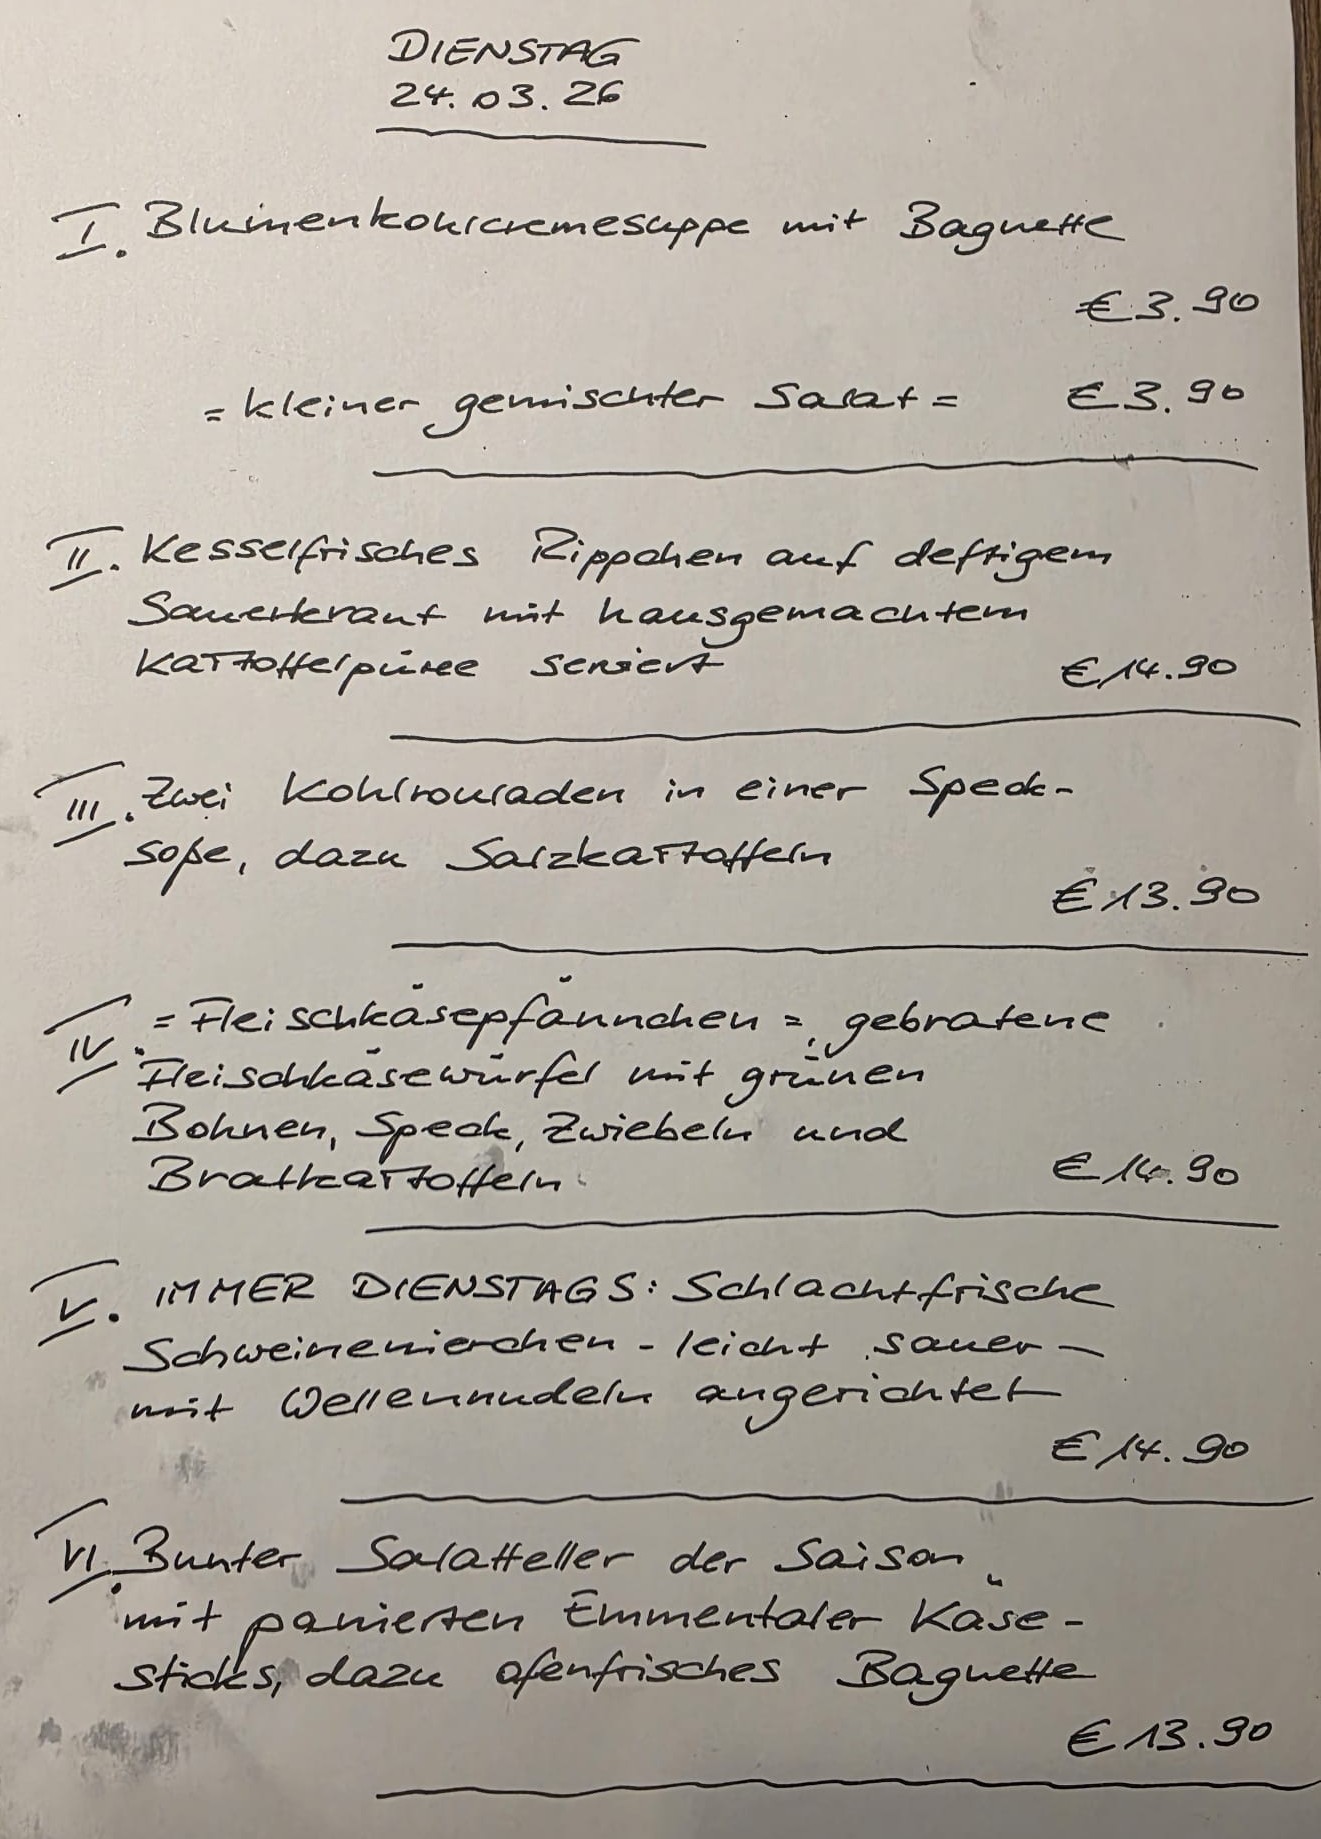 DIENSTAG
24.03.26
I. Blumenkohlcremesuppe mit Baguette
€ 3.90
= kleiner gemischter Salat = € 3.90
II. Kesselfrisches Rippchen auf deftigem
Sauerkraut mit hausgemachtem
Kartoffelpüree serviert € 14.90
III. Zwei Kohlrouladen in einer Speck-
soße, dazu Salzkartoffeln
€ 13.90
IV. = Fleischkäsepfännchen = gebratene
Fleischkäsewürfel mit grünen
Bohnen, Speck, Zwiebeln und
Bratkartoffeln € 14.90
V. IMMER DIENSTAGS: Schlachtfrische
Schweinenierchen - leicht sauer -
mit Wellennudeln angerichtet
€ 14.90
VI. Bunter Salatteller der Saison
mit panierten Emmentaler Käse-
sticks, dazu ofenfrisches Baguette
€ 13.90